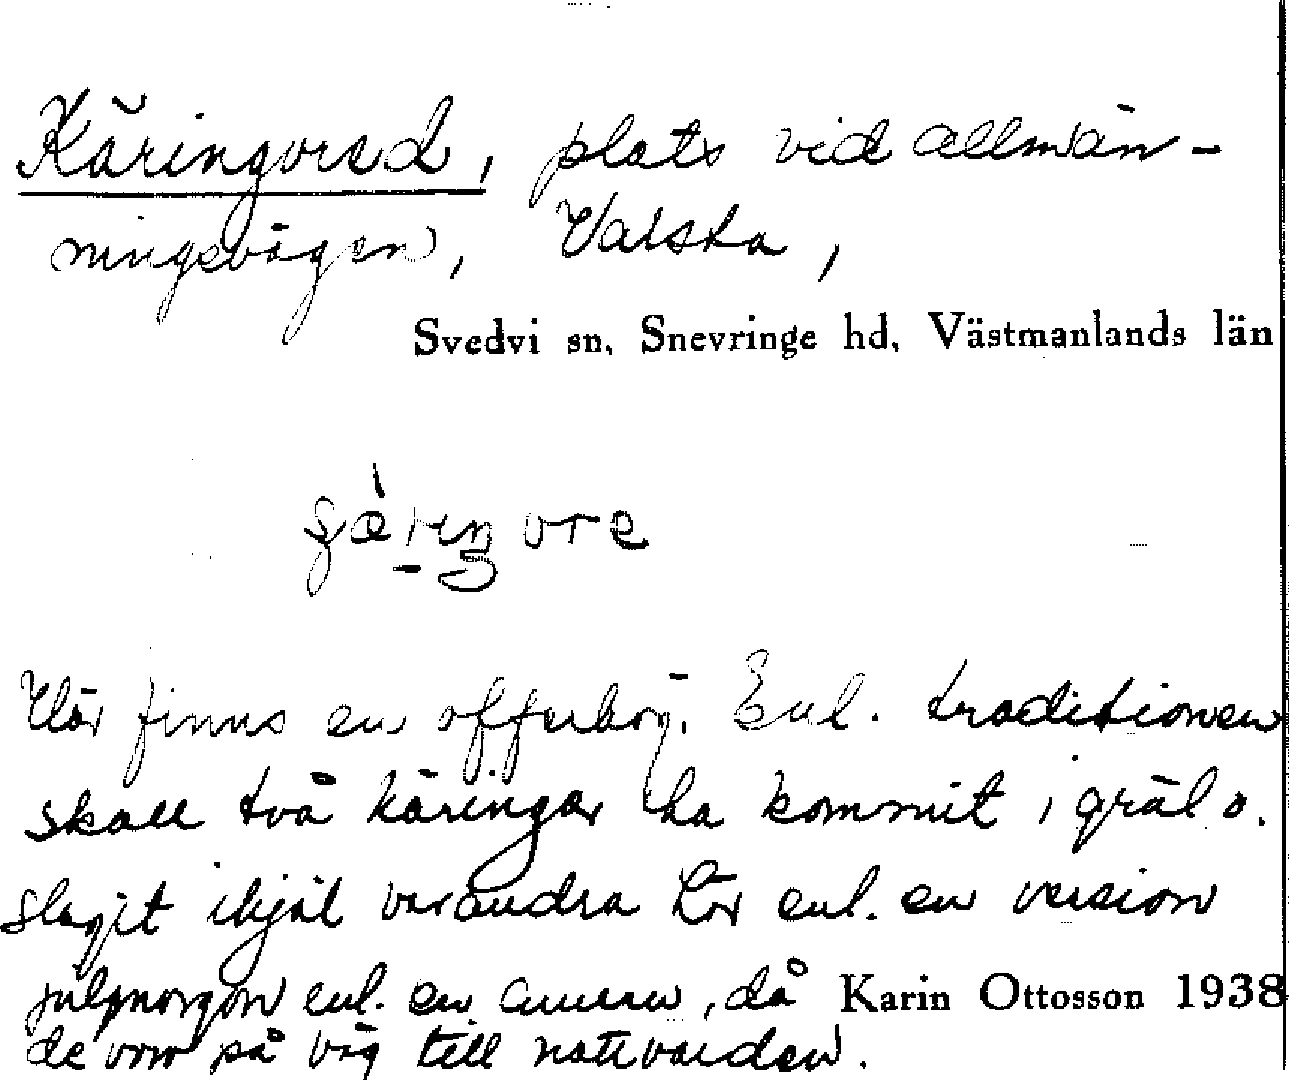 Käringvred, plats vid allmän-
ningsvägen, Valsta,
Svedvi sn, Snevringe hd, Västmanlands län
Här finns en offerhög. Enl. traditionen
skall två käringar ha kommit i gräl o.
slagit ihjäl varandra här enl. en version
julmorgon enl. en annan, då Karin Ottosson 1938
de vom på väg till nattvarden.